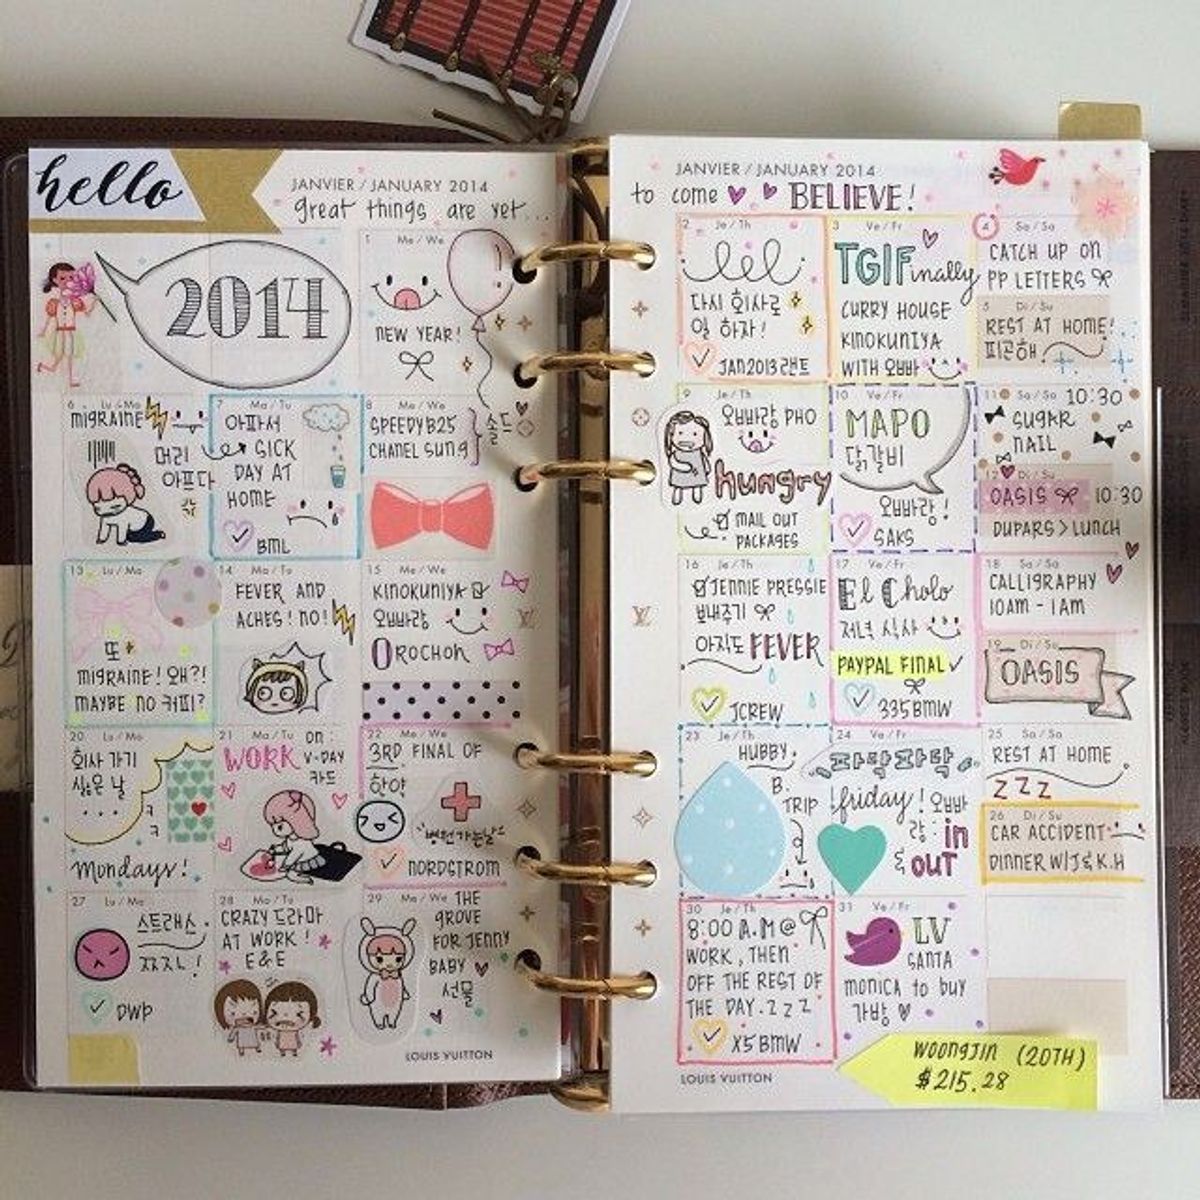 hello
JANVIER / JANUARY 2014
great things are yet...
2014
1 Me / We
NEW YEAR!
6 Lu / Mo
MIGRAINE
머리
아프다
7 Ma / Tu
아파서
SICK
DAY AT
HOME
BML
8 Me / We
SPEEDY B25
CHANEL SUNG
솔드
13 Lu / Mo
또
MIGRAINE! 왜?!
MAYBE NO 커피?
14 Ma / Tu
FEVER AND
ACHES! NO!
15 Me / We
KINOKUNIYA
오빠랑
OROCHON
20 Lu / Mo
회사 가기
싫은 날
...
ㅋ
ㅋ
Mondays!
21 Ma / Tu
WORK on:
V-DAY
카드
22 Me / We
3RD FINAL OF
핫야
병원가는날
NORDSTROM
27 Lu / Mo
스트레스
짜지ㄴ!
DWP
28 Ma / Tu
CRAZY 드라마
AT WORK!
E&E
29 Me / We
THE
GROVE
FOR JENNY
BABY
선물
LOUIS VUITTON
JANVIER / JANUARY 2014
to come BELIEVE!
2 Je / Th
다시 회사로
일 하자!
JAN2013 랜트
3 Ve / Fr
TGIFinally
CURRY HOUSE
KINOKUNIYA
WITH 오빠
4 Sa / Sa
CATCH UP ON
PP LETTERS
5 Di / Su
REST AT HOME!
피곤해.
9 Je / Th
오빠랑 PHO
hungry
MAIL OUT
PACKAGES
10 Ve / Fr
MAPO
닭갈비
오빠랑!
SAKS
11 Sa / Sa
10:30
SUGAR
NAIL
12 Di / Su
OASIS 10:30
DUPARS > LUNCH
16 Je / Th
JENNIE PRESSIE
보내주기
아직도 FEVER
JCREW
17 Ve / Fr
El Cholo
저녁 식사
PAYPAL FINAL
335BMW
18 Sa / Sa
CALLIGRAPHY
10AM - 1AM
19 Di / Su
OASIS
23 Je / Th
HUBBY
B.
TRIP
24 Ve / Fr
파닥파닥
friday! 오빠
랑: in
& OUT
25 Sa / Sa
REST AT HOME
ZZZ
26 Di / Su
CAR ACCIDENT
DINNER W/J & K.H
30 Je / Th
8:00 A.M @
WORK, THEN
OFF THE REST OF
THE DAY. ZZZ
X5 BMW
31 Ve / Fr
LV
SANTA
MONICA to BUY
가방
LOUIS VUITTON
WOONGJIN (20TH)
$215.28